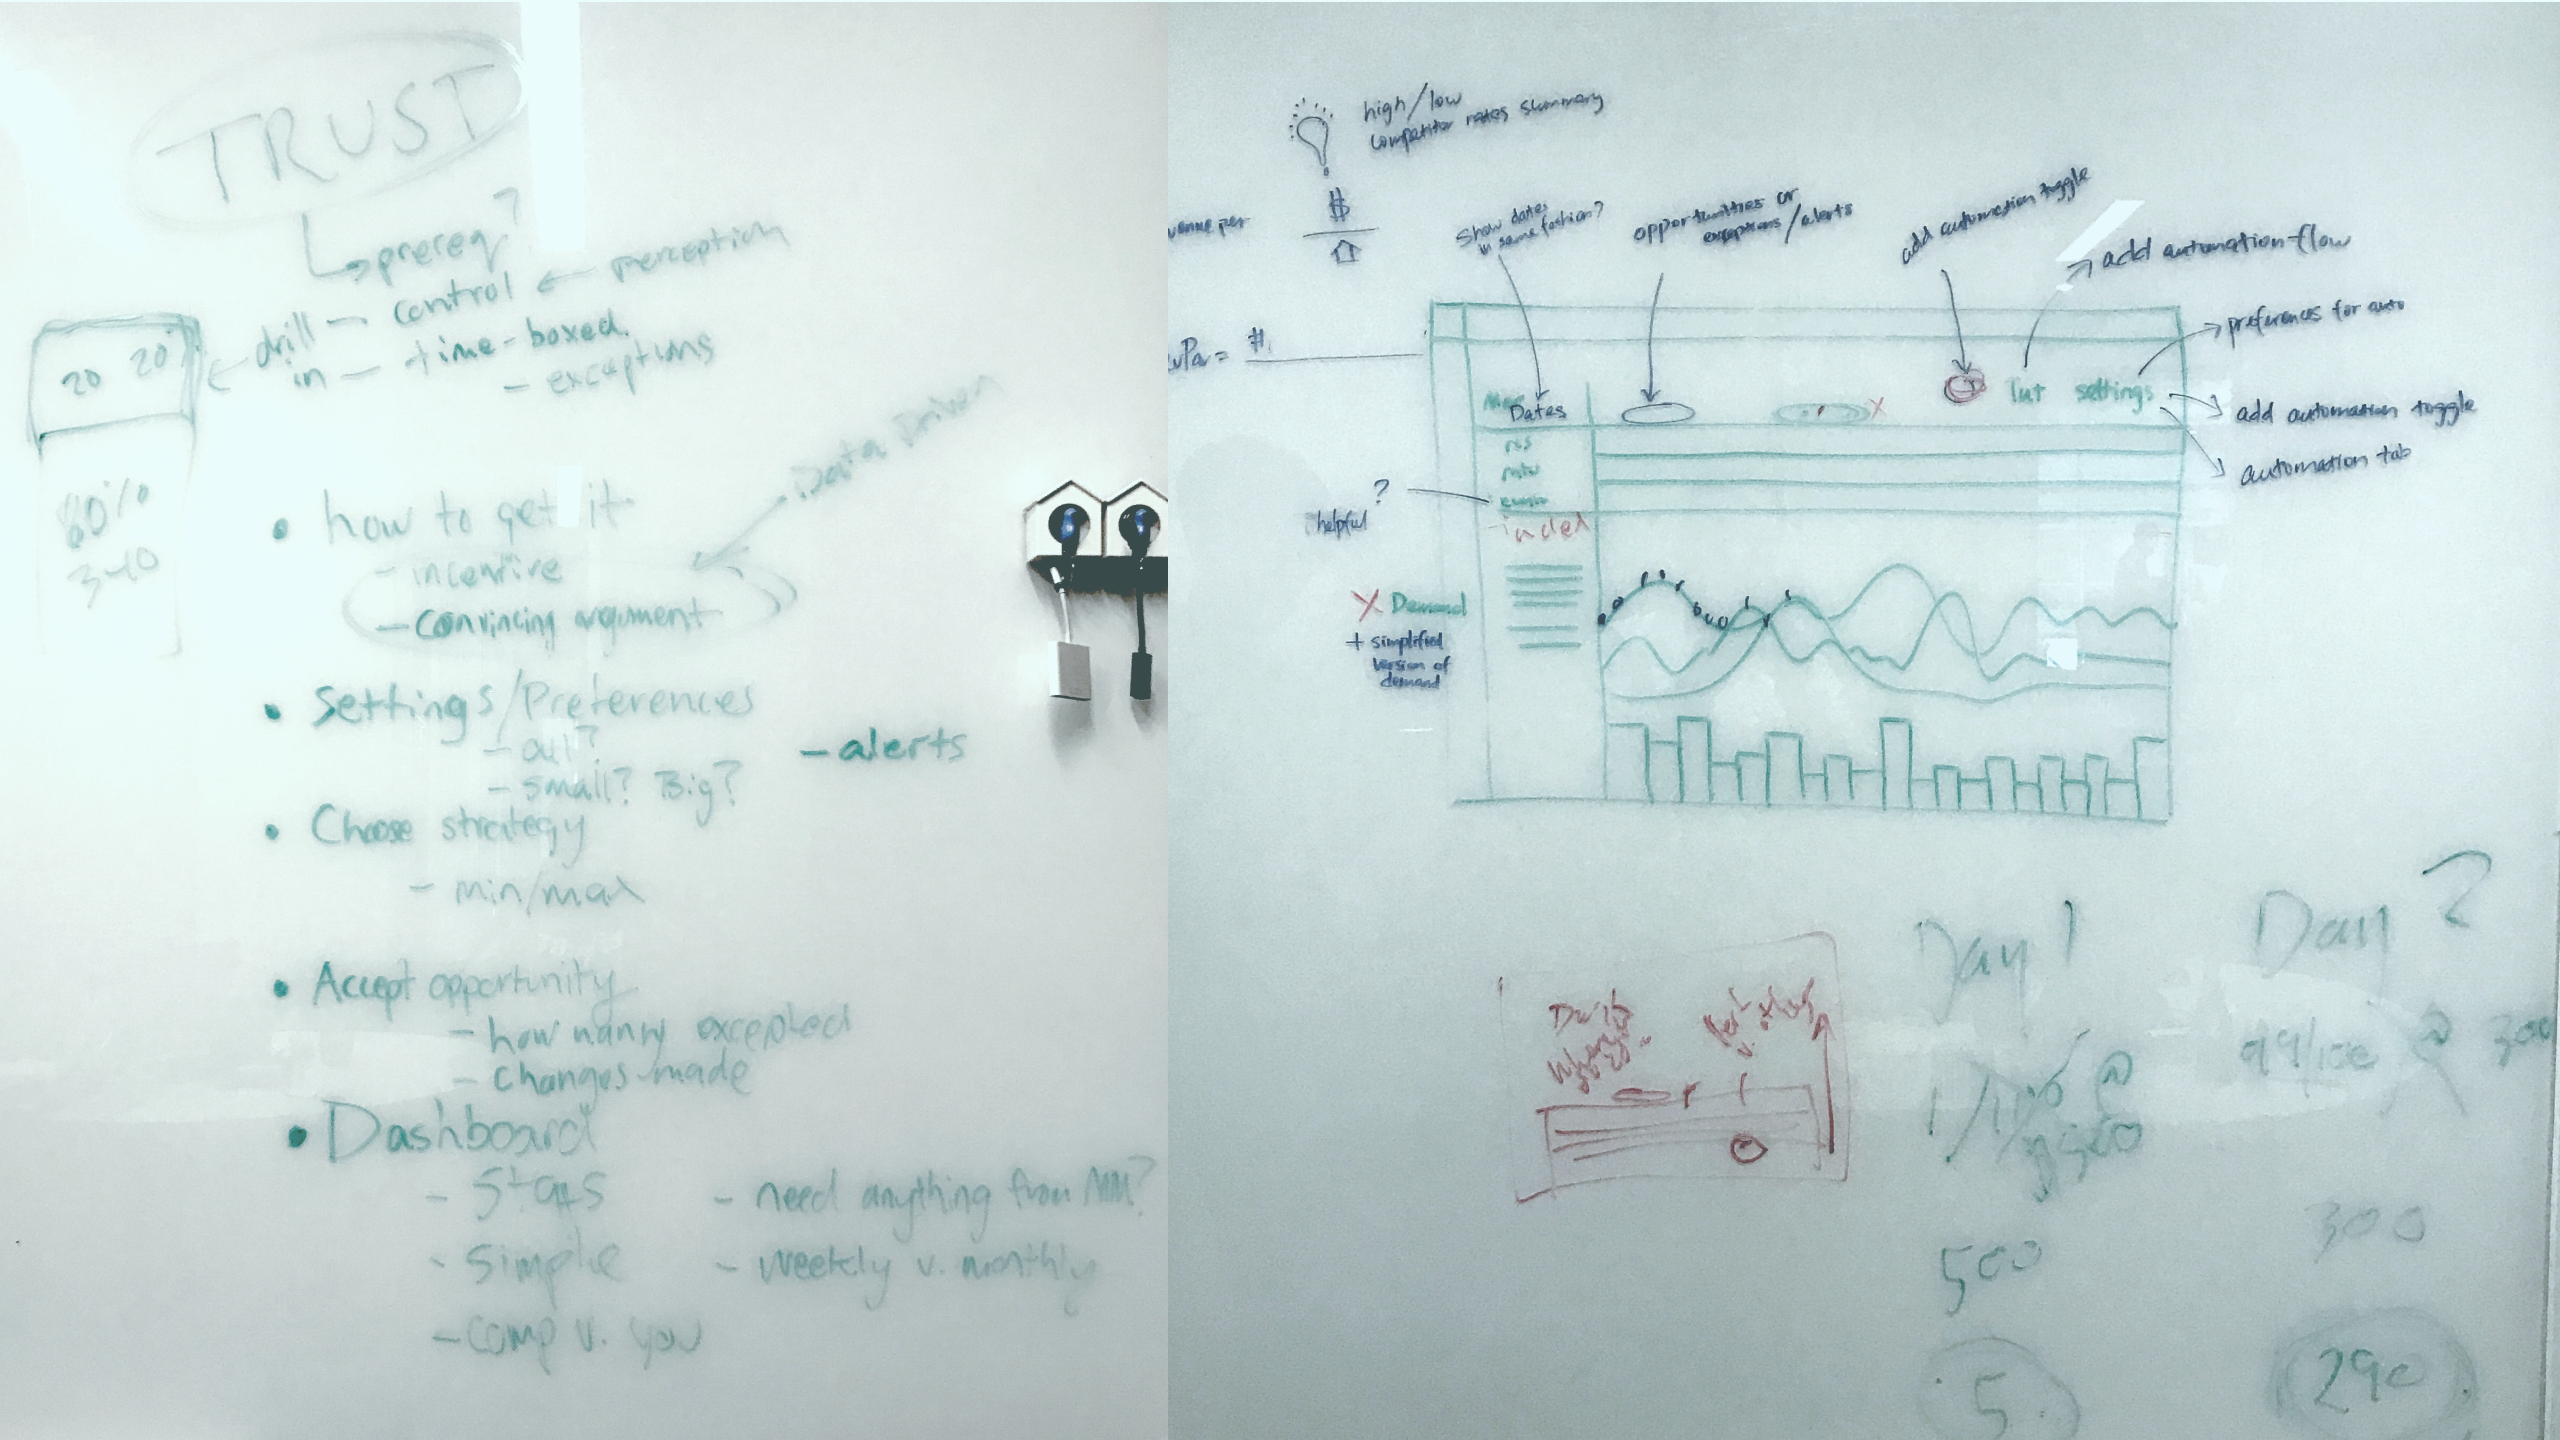 TRUST
prereq?
drill in
- control
perception
- time-boxed.
- exceptions
20 20
80%
340
Data Driven
• how to get it
- incentive
- convincing argument
• Settings/Preferences
- all?
- small? Big?
- alerts
• Choose strategy
- min/max
• Accept opportunity
- how many excepted
- changes made
• Dashboard
- Stats
- Simple
- comp v. you
- need anything from MM?
- weekly v. monthly
high/low
competitor rates summary
$
venue per
Show dates
in same fashion?
opportunities or
exceptions/alerts
add automation toggle
add automation flow
preferences for auto
add automation toggle
automation tab
vPar = #
Dates
settings
?
helpful
X Demand
+ simplified
version of
demand
X
Day 1
Day 2
99/100 @ 300
500
300
5
290